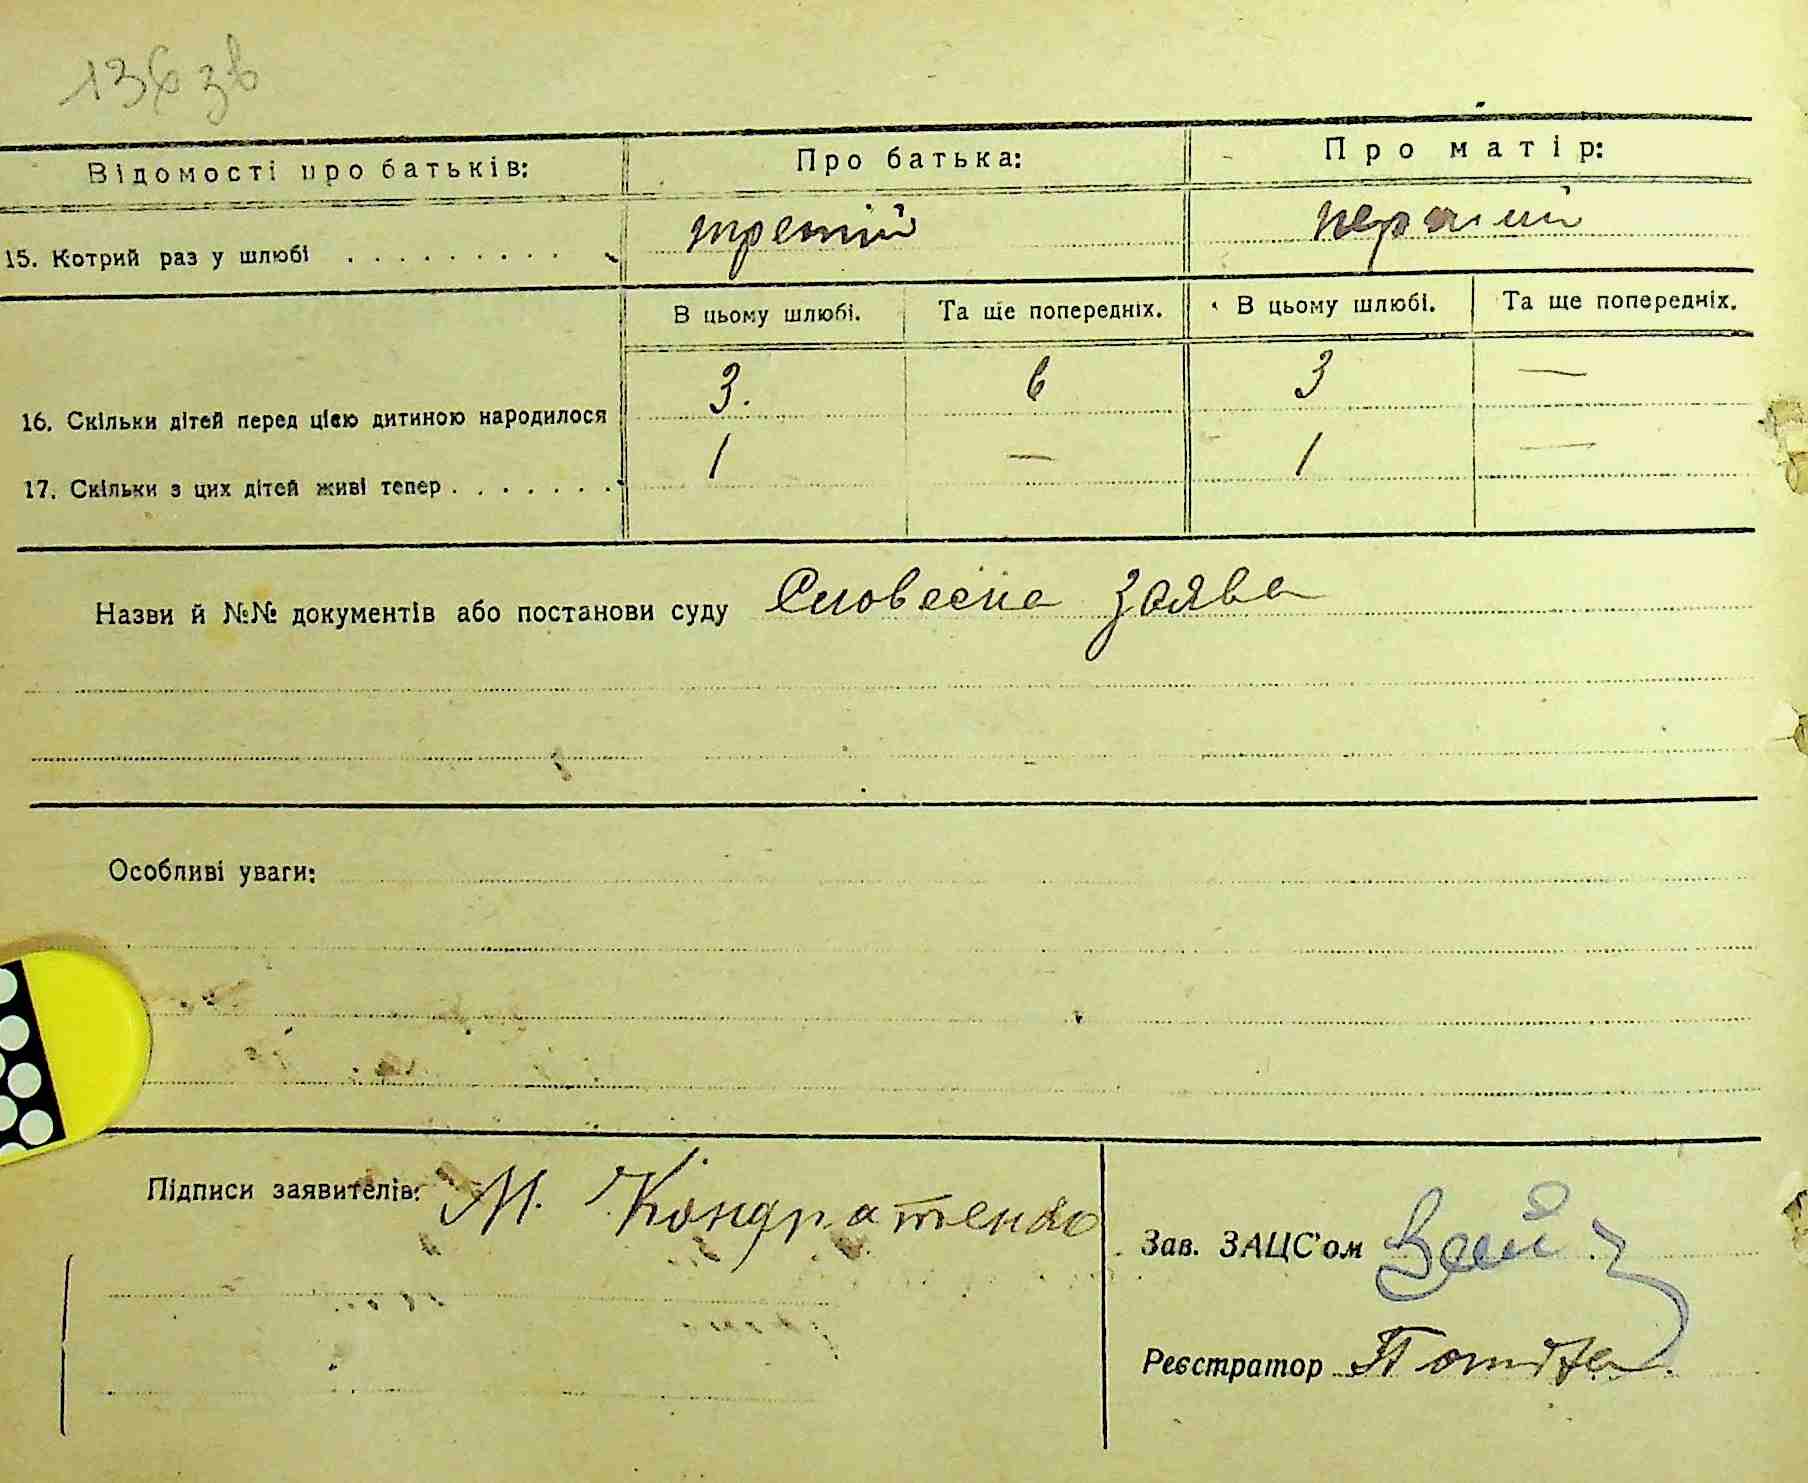 136 зв
Відомості про батьків: Про батька: Про матір:
15. Котрий раз у шлюбі третій перший
В цьому шлюбі. Та ще попередніх. В цьому шлюбі. Та ще попередніх.
16. Скільки дітей перед цією дитиною народилося 3. 6 3 —
17. Скільки з цих дітей живі тепер 1 — 1 —
Назви й №№ документів або постанови суду Словесна заява
Особливі уваги:
Підписи заявителів: М. Кондратенко
Зав. ЗАЦС'ом
Реєстратор